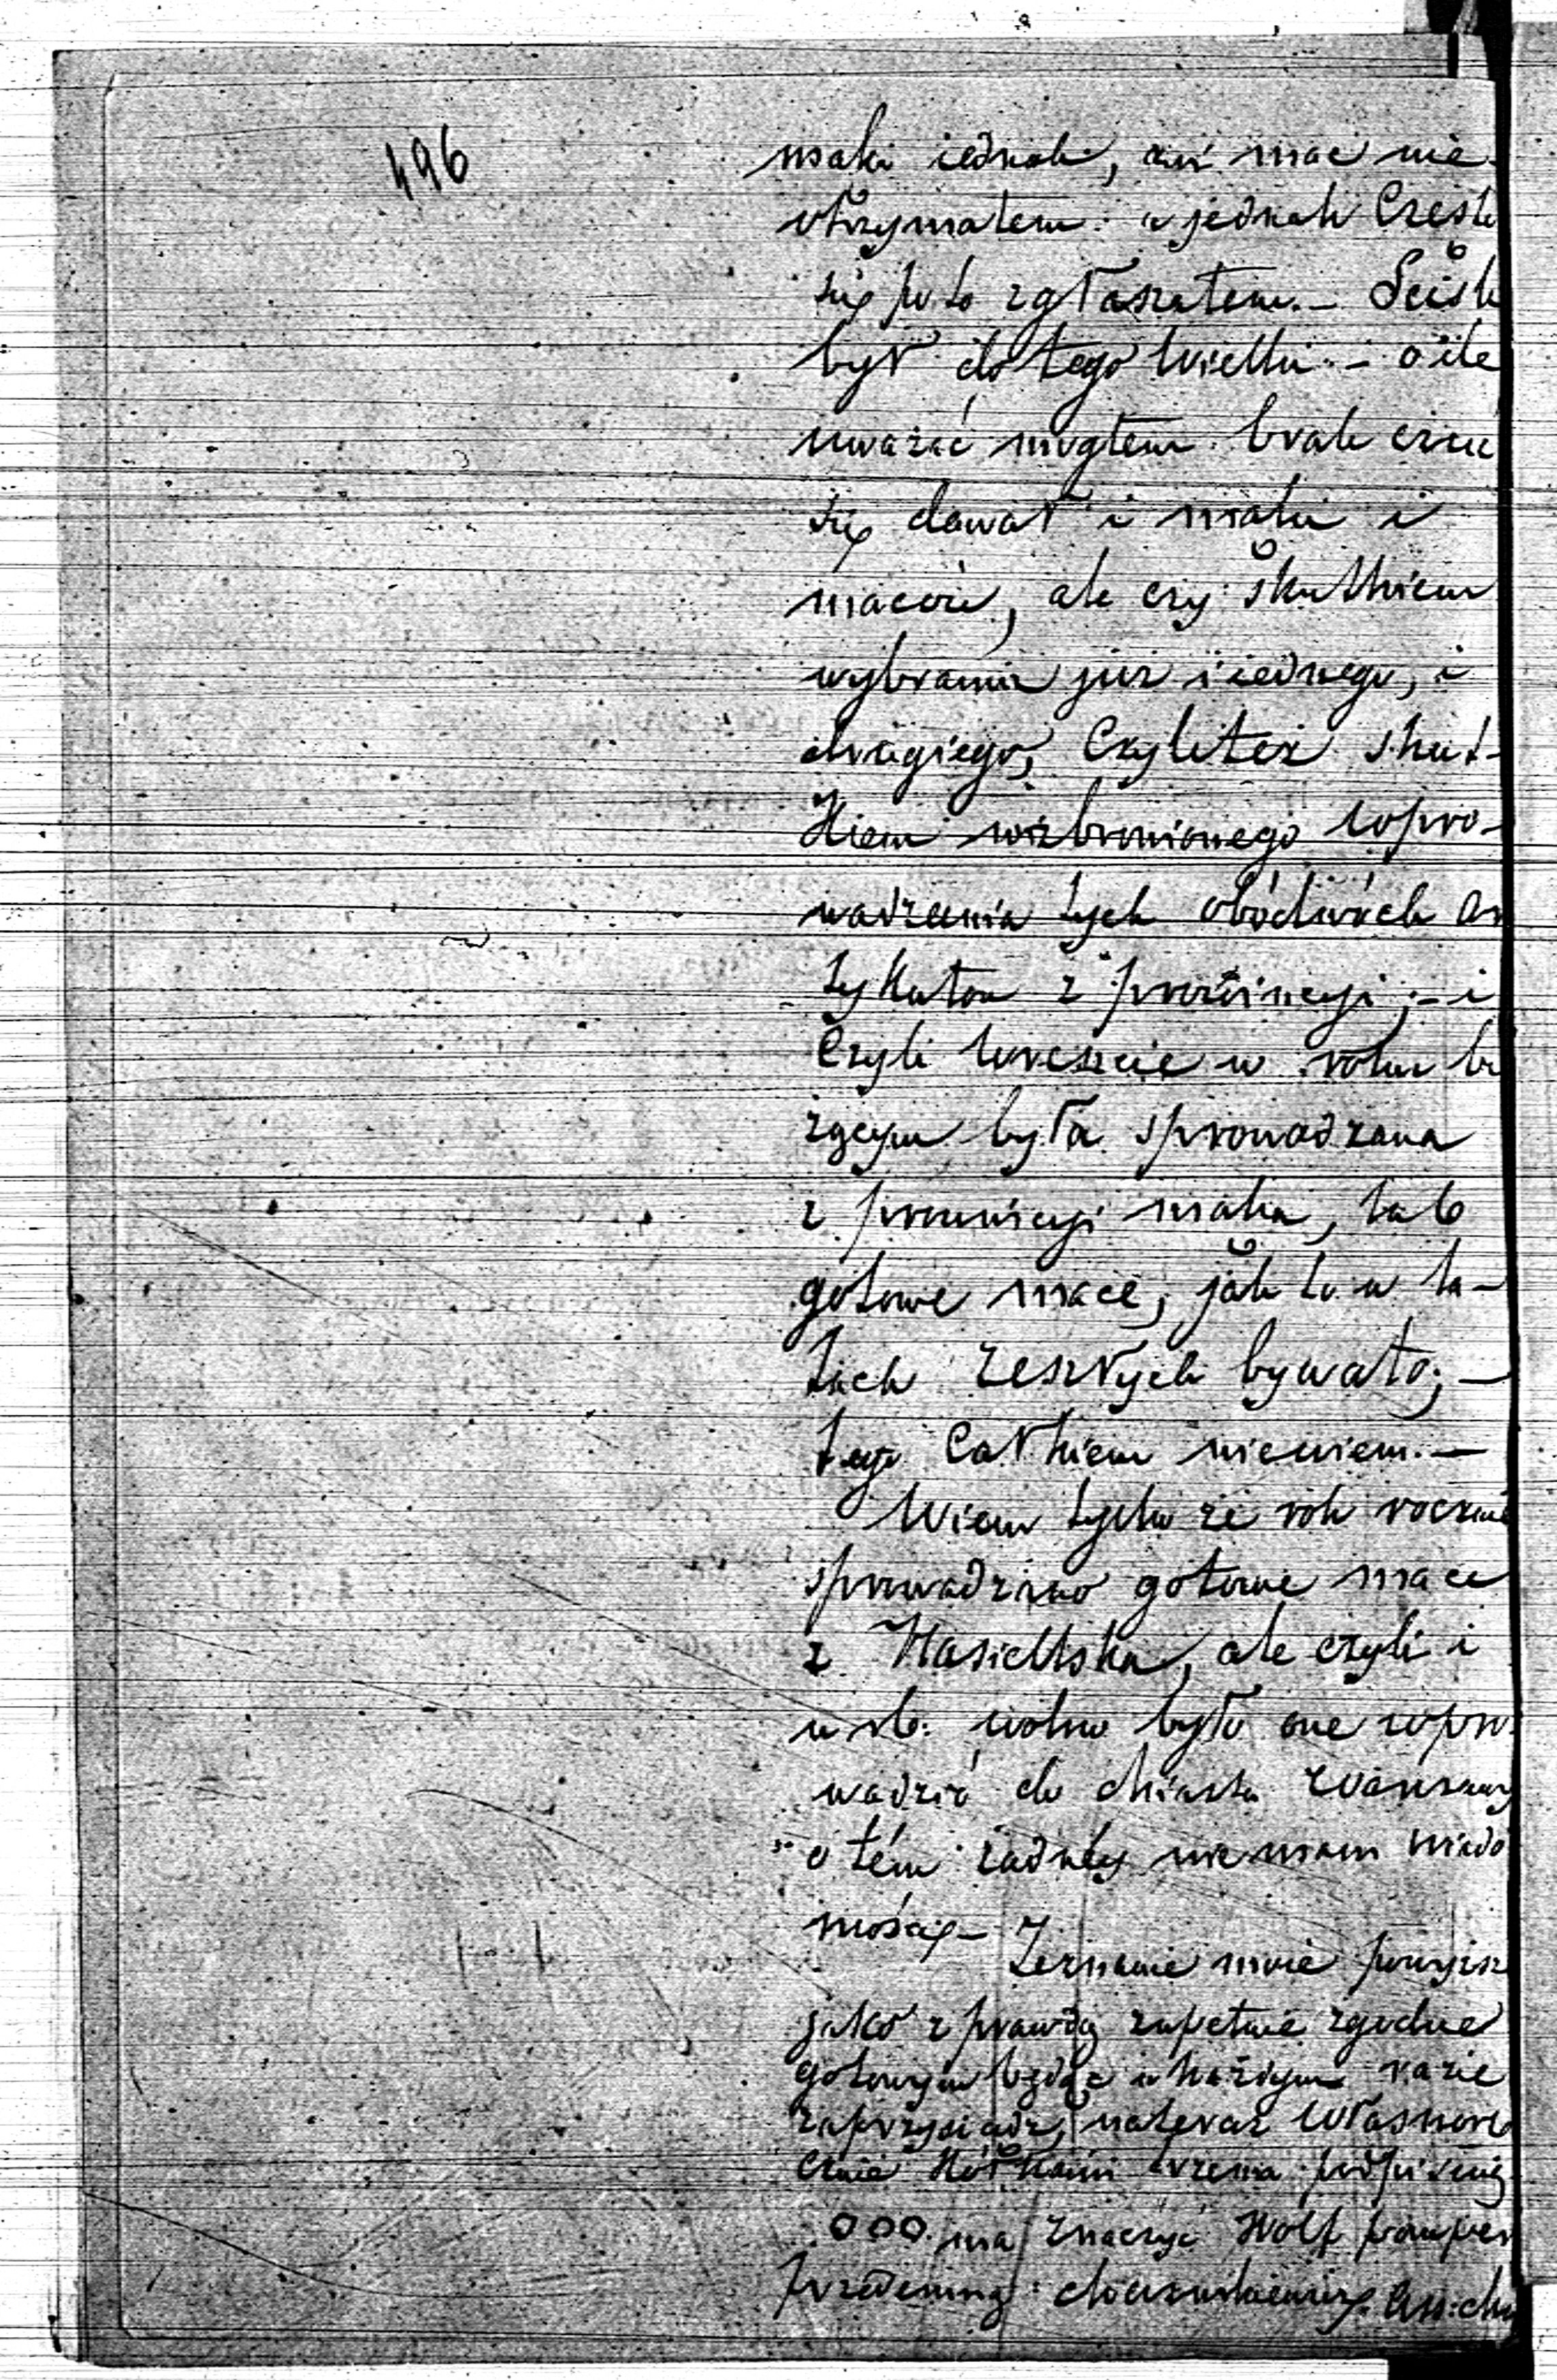 496
mąki iednak, ani mac nie
otrzymałem: a jednak Często
się po to zgłaszałem. – Ścisk
był do tego wielki – o ile
uważać mogłem brak czuć
się dawał i mąki i
maców, ale czy skutkiem
wybrania już i iednego, i
drugiego, Czyliteż skut-
kiem wzbronionego wpro-
wadzenia tych obódwóch ar
tykułów z prowincyi; – i
Czyli wreszcie w roku bie
żącym była sprowadzana
z prowincyi mąka, lub
gotowe mace, jak to w la-
tach zeszłych bywało; –
tego Całkiem niewiem. –
Wiem tylko że rok rocznie
sprowadzano gotowe mace
z Nasielska, ale czyli i
w rb: wolno było one wpro
wadzić do Miasta Warszawy
o tém żadnéj nie mam wiado
mości –
Zeznanie moie powyższ
jako z prawdą zupełnie zgodne
gotowym będąc w każdym razie
zaprzysiądz, nateraz własnorę
cznie Kółkami trzema podpisuię
000 ma znaczyć Wolf
przedemną: